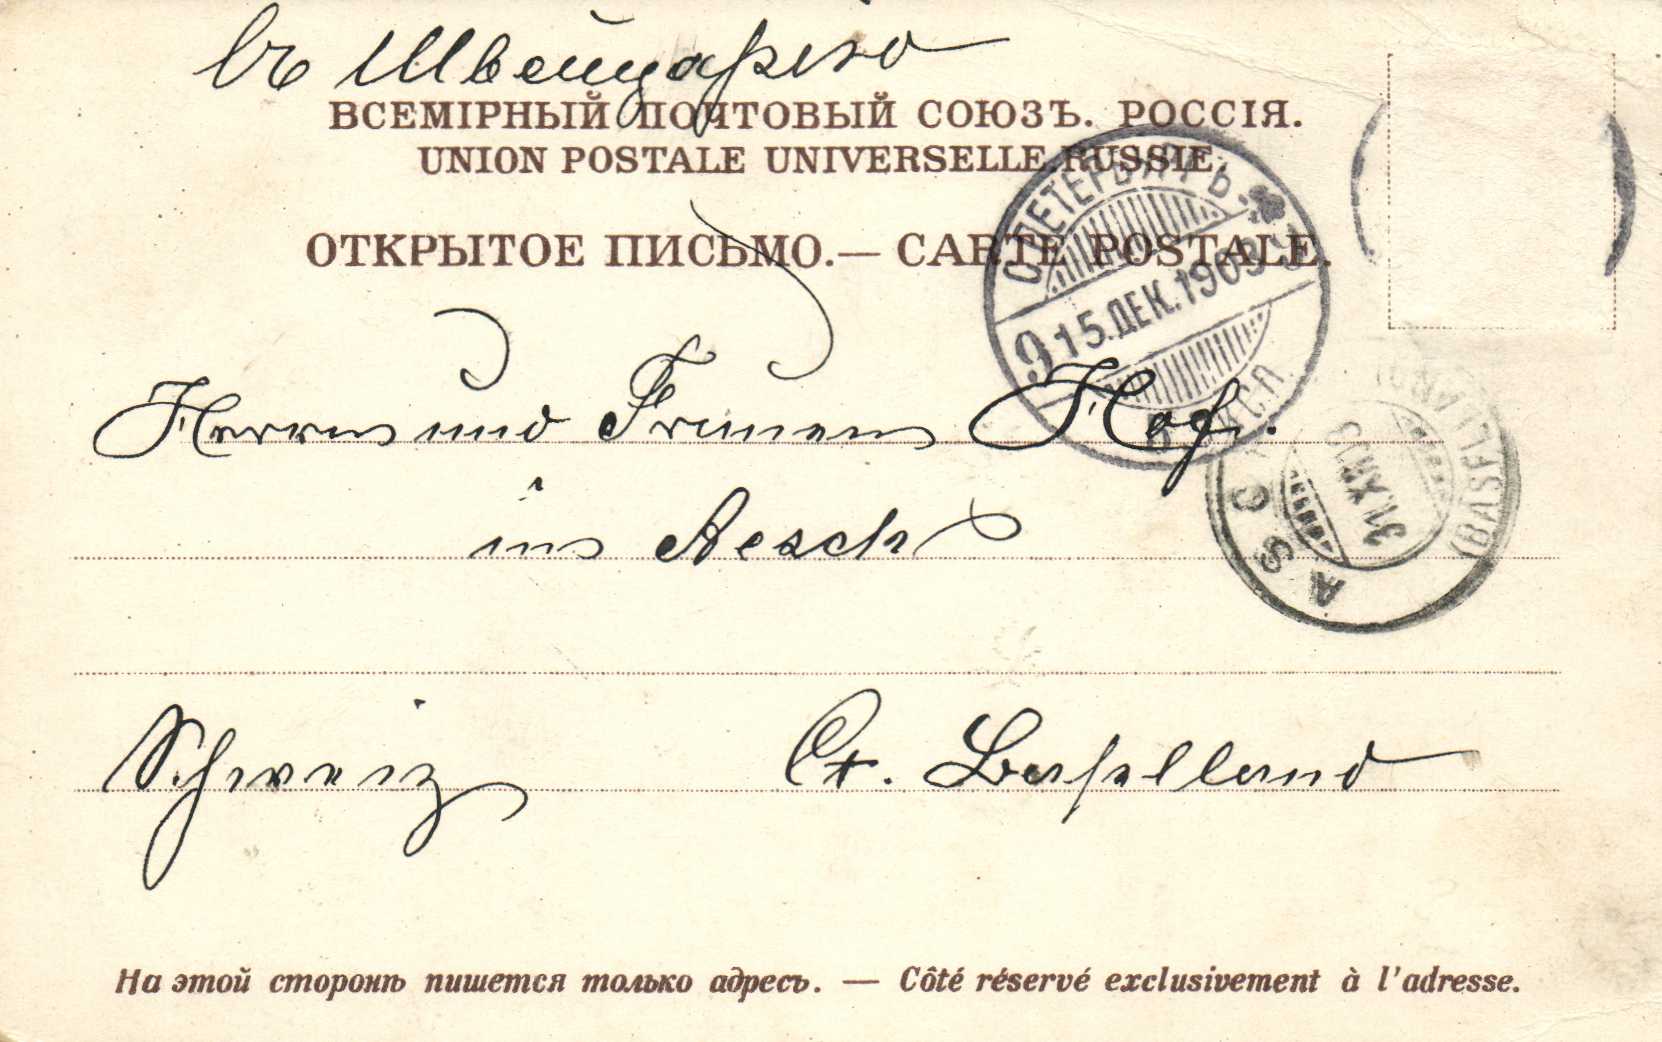 въ Швейцарію
ВСЕМІРНЫЙ ПОЧТОВЫЙ СОЮЗЪ. РОССІЯ.
UNION POSTALE UNIVERSELLE. RUSSIE.
ОТКРЫТОЕ ПИСЬМО.— CARTE POSTALE.
С.ПЕТЕРБУРГЪ
9 15.ДЕК.1903
Herren und Frauen Hof.
ins Aesch
AESCH
(BASELLAND)
31.XII.03
Schweiz Ct. Baselland
На этой сторонѣ пишется только адресъ. — Côté réservé exclusivement à l'adresse.